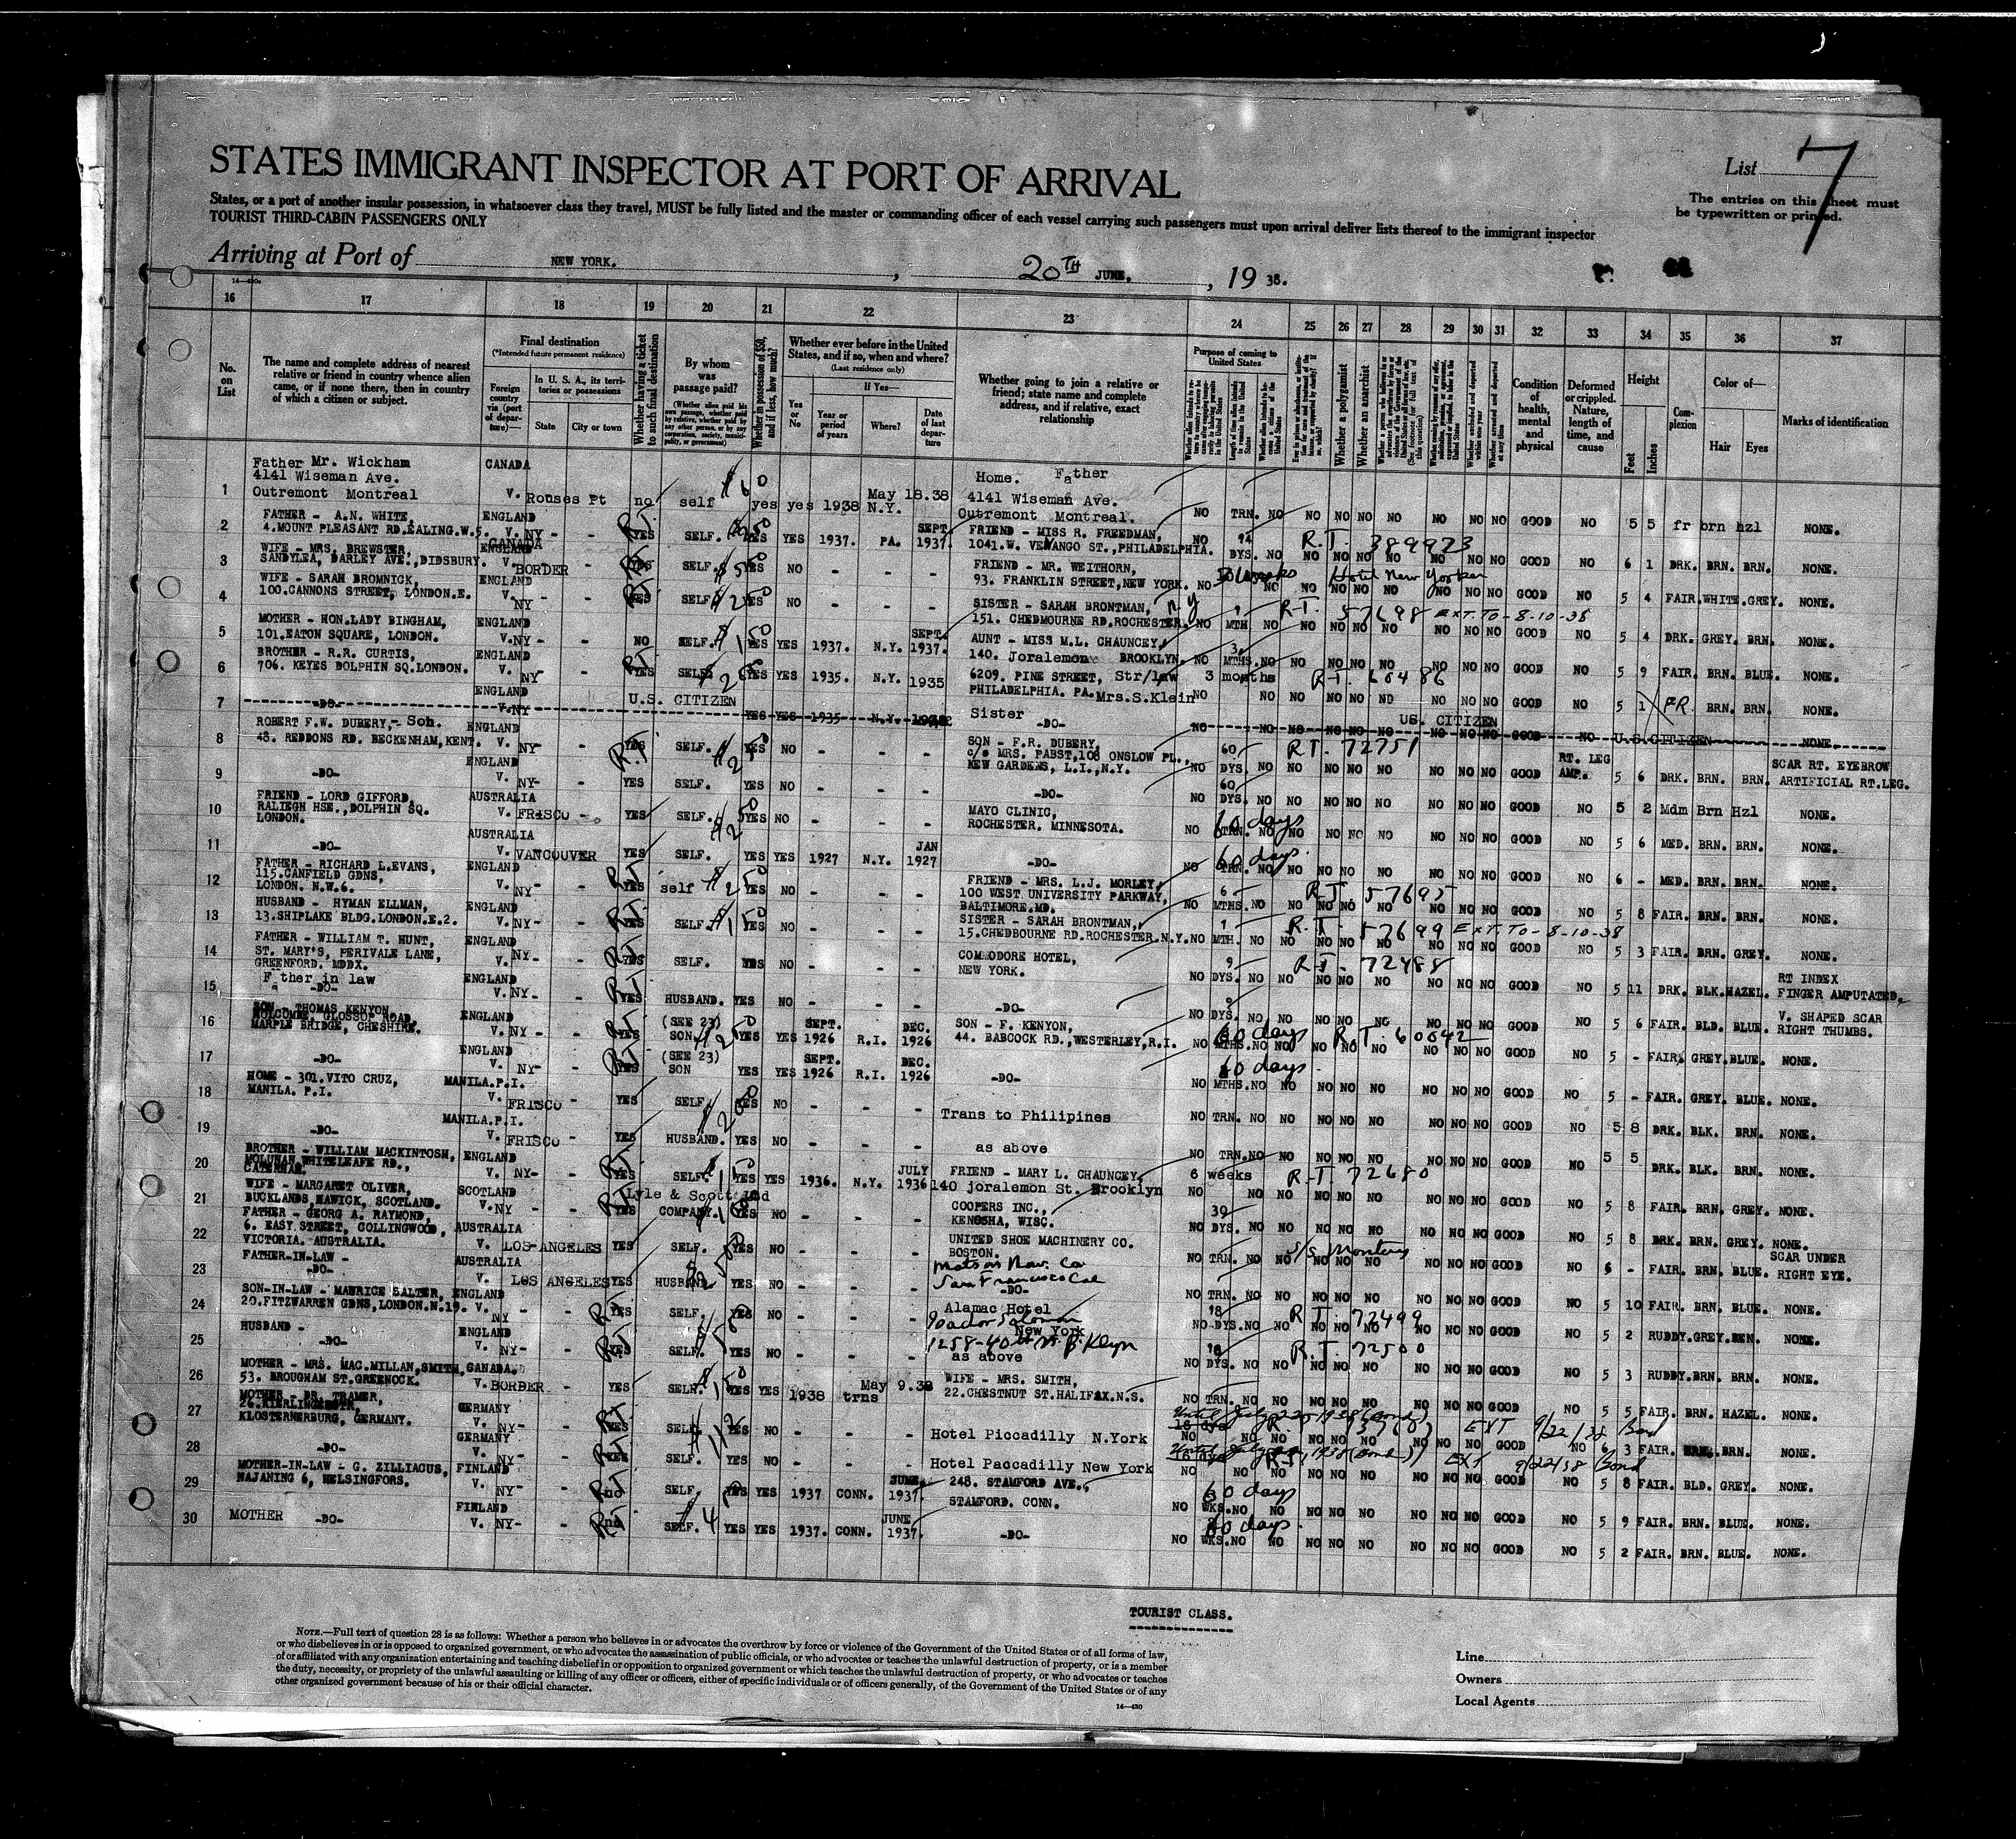 STATES IMMIGRANT INSPECTOR AT PORT OF ARRIVAL
List 7
States, or a port of another insular possession, in whatsoever class they travel, MUST be fully listed and the master or commanding officer of each vessel carrying such passengers must upon arrival deliver lists thereof to the immigrant inspector
The entries on this sheet must
be typewritten or printed.
TOURIST THIRD-CABIN PASSENGERS ONLY
Arriving at Port of NEW YORK. , 20TH JUNE. , 19 38.
16 17 18 19 20 21 22 23 24 25 26 27 28 29 30 31 32 33 34 35 36 37
No. on List
The name and complete address of nearest relative or friend in country whence alien came, or if none there, then in country of which a citizen or subject.
Final destination
(*Intended future permanent residence)
Foreign country via (port of departure)—
In U. S. A., its territories or possessions
State City or town
Whether having a ticket to such final destination
By whom was passage paid?
(Whether alien paid his own passage, whether paid by relative, whether paid by any other person, or by any corporation, society, municipality, or government)
Whether in possession of $50, and if less, how much?
Whether ever before in the United States, and if so, when and where?
(Last residence only)
Yes or No
If Yes—
Year or period of years
Where?
Date of last departure
Whether going to join a relative or friend; state name and complete address, and if relative, exact relationship
Purpose of coming to United States
Whether a polygamist
Whether an anarchist
Condition of health, mental and physical
Deformed or crippled. Nature, length of time, and cause
Height
Feet Inches
Complexion
Color of—
Hair Eyes
Marks of identification
1 Father Mr. Wickham 4141 Wiseman Ave. Outremont Montreal CANADA V. Rouses Pt no self $60 yes yes 1938 N.Y. May 18.38 Home. Father 4141 Wiseman Ave. Outremont Montreal. NO TRN. NO NO NO NO NO NO NO NO GOOD NO 5 5 fr brn hzl NONE.
2 FATHER - A.N. WHITE, 4.MOUNT PLEASANT RD.EALING.W.5. ENGLAND V. NY - - RT YES SELF. $250 YES YES 1937. PA. SEPT. 1937. FRIEND - MISS R. FREEDMAN, 1041.W. VENANGO ST.,PHILADELPHIA. NO 14 DYS. NO R.T. 389923 NO NO NO NO NO NO NO GOOD NO 6 1 DRK. BRN. BRN. NONE.
3 WIFE - MRS. BREWSTER, SANDYLEA, DARLEY AVE.,DIDSBURY. ENGLAND CANADA V. BORDER RT YES SELF. $50 YES NO - - - FRIEND - MR. WEITHORN, 93. FRANKLIN STREET,NEW YORK. NO Hotel New Yorker NO NO NO NO NO NO NO NO GOOD NO 5 4 FAIR.WHITE.GREY. NONE.
4 WIFE - SARAH BROMNICK, 100.CANNONS STREET, LONDON.E. ENGLAND V. NY RT YES SELF. $250 YES NO - - - SISTER - SARAH BRONTMAN, N.Y 151. CHEDMOURNE RD.ROCHESTER. NO 1 MTH NO R.T. 57698 EXT. TO - 8-10-38 NO NO NO NO NO NO NO GOOD NO 5 4 DRK. GREY. BRN. NONE.
5 MOTHER - HON.LADY BINGHAM, 101.EATON SQUARE, LONDON. ENGLAND V.NY - - NO SELF. $150 YES YES 1937. N.Y. SEPT. 1937. AUNT - MISS M.L. CHAUNCEY, 140. Joralemon BROOKLYN. NO 3 MTHS. NO NO NO NO NO NO NO NO GOOD NO 5 9 FAIR. BRN. BLUE. NONE.
6 BROTHER - R.R. CURTIS, 706. KEYES DOLPHIN SQ.LONDON. ENGLAND V. NY RT YES SELF. $250 YES YES 1935. N.Y. 1935 6209. PINE STREET, Str/law PHILADELPHIA. PA. Mrs.S.Klein NO 3 months R.T. 60486 NO NO NO NO NO NO NO GOOD NO 5 1 FR BRN. BRN. NONE.
7 -DO- ENGLAND V.NY U.S. CITIZEN YES YES 1935 N.Y. Sister -DO- NO NO NO NO NO US. CITIZEN NO NO NO GOOD NO U.S.CITIZEN NONE.
8 ROBERT F.W. DUBERY,- Son. 48. REDDONS RD. BECKENHAM,KENT. ENGLAND V. NY - RT YES SELF. $250 YES NO - - - SON - F.R. DUBERY, c/o MRS. PABST,108 ONSLOW PL., KEW GARDENS, L.I.,N.Y. NO 60 DYS. NO R.T. 72751 NO NO NO NO NO NO NO GOOD RT. LEG AMP. 5 6 DRK. BRN. BRN. SCAR RT. EYEBROW ARTIFICIAL RT.LEG.
9 -DO- ENGLAND V. NY- - YES SELF. YES NO - - - -DO- NO 60 DYS. NO NO NO NO NO NO NO NO GOOD NO 5 2 Mdm Brn Hzl NONE.
10 FRIEND - LORD GIFFORD, RALIEGH HSE.,DOLPHIN SQ. LONDON. AUSTRALIA V. FRISCO - YES SELF. $250 YES NO - - - MAYO CLINIC, ROCHESTER. MINNESOTA. NO 60 days TRN. NO NO NO NO NO NO NO NO GOOD NO 5 6 MED. BRN. BRN. NONE.
11 -DO- AUSTRALIA V. VANCOUVER YES SELF. YES YES 1927 N.Y. JAN 1927 -DO- NO 60 days TRN. NO NO NO NO NO NO NO NO GOOD NO 6 - MED. BRN. BRN. NONE.
12 FATHER - RICHARD L.EVANS, 115.CANFIELD GDNS, LONDON. N.W.6. ENGLAND V. NY - RT YES self $250 YES NO - - - FRIEND - MRS. L.J. MORLEY, 100 WEST UNIVERSITY PARKWAY, BALTIMORE.MD. NO 6 MTHS. NO R.T. 57695 NO NO NO NO NO NO NO GOOD NO 5 8 FAIR. BRN. BRN. NONE.
13 HUSBAND - HYMAN ELLMAN, 13.SHIPLAKE BLDG.LONDON.E.2. ENGLAND V. NY- - RT YES SELF. $150 YES NO - - - SISTER - SARAH BRONTMAN, 15.CHEDBOURNE RD.ROCHESTER.N.Y. NO 1 MTH. NO R.T. 57699 EXT. TO - 8-10-38 NO NO NO NO NO NO NO GOOD NO 5 3 FAIR. BRN. GREY. NONE.
14 FATHER - WILLIAM T. HUNT, ST. MARY'S, PERIVALE LANE, GREENFORD. MDDX. ENGLAND V. NY- - RT YES SELF. YES NO - - - COMMODORE HOTEL, NEW YORK. NO 9 DYS. NO R.T. 72488 NO NO NO NO NO NO NO GOOD NO 5 11 DRK. BLK. HAZEL. RT INDEX FINGER AMPUTATED.
15 Father in law -DO- ENGLAND V. NY- - RT YES HUSBAND. YES NO - - - -DO- NO 9 DYS. NO NO NO NO NO NO NO NO GOOD NO 5 6 FAIR. BLD. BLUE. V. SHAPED SCAR RIGHT THUMBS.
16 SON - THOMAS KENYON HOLCOMBE, GLOSSOP ROAD, MARPLE BRIDGE, CHESHIRE. ENGLAND V. NY - - RT YES (SEE 23) SON $250 YES YES SEPT. 1926 R.I. DEC. 1926 SON - F. KENYON, 44. BABCOCK RD.,WESTERLEY,R.I. NO 60 days MTHS. NO R.T. 60642 NO NO NO NO NO NO NO GOOD NO 5 - FAIR. GREY. BLUE. NONE.
17 -DO- ENGLAND V. NY- - RT YES (SEE 23) SON YES YES SEPT. 1926 R.I. DEC. 1926 -DO- NO 60 days MTHS. NO NO NO NO NO NO NO NO GOOD NO 5 - FAIR. GREY. BLUE. NONE.
18 HOME - 301.VITO CRUZ, MANILA. P.I. MANILA.P.I. V. FRISCO - YES SELF. $200 YES NO - - - Trans to Philipines NO TRN. NO NO NO NO NO NO NO NO GOOD NO 5 8 DRK. BLK. BRN. NONE.
19 -DO- MANILA.P.I. V. FRISCO - YES HUSBAND. YES NO - - - as above NO TRN. NO NO NO NO NO NO NO NO GOOD NO 5 5 DRK. BLK. BRN. NONE.
20 BROTHER - WILLIAM MACKINTOSH, WHITELEAFE RD., CATERHAM. ENGLAND V. NY- - RT YES SELF. $150 YES YES 1936. N.Y. JULY 1936 FRIEND - MARY L. CHAUNCEY 140 joralemon St. Brooklyn NO 6 weeks R.T. 72680 NO NO NO NO NO NO NO NO GOOD NO 5 8 FAIR. BRN. GREY. NONE.
21 WIFE - MARGARET OLIVER, BUCKLANDS,HAWICK, SCOTLAND. SCOTLAND V. NY- - RT YES Lyle & Scott Ltd COMPANY. YES NO - - - COOPERS INC., KENOSHA, WISC. NO 30 DYS. NO NO NO NO NO NO NO NO GOOD NO 5 8 DRK. BRN. GREY. NONE.
22 FATHER - GEORG A. RAYMOND, 6. EASY.STREET, COLLINGWOOD, VICTORIA. AUSTRALIA. AUSTRALIA V. LOS ANGELES YES SELF. YES NO - - - UNITED SHOE MACHINERY CO. BOSTON. NO TRN. NO S/S Monterey NO NO NO NO NO NO NO GOOD NO 6 - FAIR. BRN. BLUE. SCAR UNDER RIGHT EYE.
23 FATHER-IN-LAW - -DO- AUSTRALIA V. LOS ANGELES YES HUSBAND YES NO - - - Matson Nav. Co San Francisco Cal -DO- NO TRN. NO NO NO NO NO NO NO NO GOOD NO 5 10 FAIR. BRN. BLUE. NONE.
24 SON-IN-LAW - MAURICE SALTER, 20.FITZWARREN GDNS,LONDON.N.19. ENGLAND V. NY RT YES SELF. YES NO - - - Alamac Hotel New York NO 18 DYS. NO R.T. 72499 NO NO NO NO NO NO NO GOOD NO 5 2 RUDDY.GREY. NONE.
25 HUSBAND - -DO- ENGLAND V. NY- - RT YES SELF. YES NO - - - 1258-40th St. B.Klyn as above NO 18 DYS. NO R.T. 72500 NO NO NO NO NO NO NO GOOD NO 5 3 RUDDY.BRN. BRN. NONE.
26 MOTHER - MRS. MAC.MILLAN,SMITH, 53. BROUGHAM ST.GREENOCK. CANADA V. BORDER - YES SELF. $150 YES YES 1938 trns May 9.38 WIFE - MRS. SMITH, 22.CHESTNUT ST.HALIFAX.N.S. NO TRN. NO NO NO NO NO NO NO NO GOOD NO 5 5 FAIR. BRN. HAZEL. NONE.
27 MOTHER - DR. TRAMER, KLOSTERNERBURG, GERMANY. GERMANY V. NY- - RT YES SELF. YES NO - - - Hotel Piccadilly N.York Until July 22, 1938 (Bond) EXT 9/22/38 Bond NO NO NO NO NO NO NO NO GOOD NO 6 3 FAIR. BRN. NONE.
28 -DO- GERMANY V. NY- - RT YES SELF. YES NO - - - Hotel Paccadily New York Until July 22, 1938 (Bond) EXT 9/22/38 Bond NO NO NO NO NO NO NO NO GOOD NO 5 8 FAIR. BLD. GREY. NONE.
29 MOTHER-IN-LAW - G. ZILLIACUS, NAJANING 6, HELSINGFORS. FINLAND V. NY- - RT no SELF. YES YES 1937 CONN. JUNE. 1937. 248. STAMFORD AVE., STAMFORD. CONN. NO 60 days WKS. NO NO NO NO NO NO NO NO GOOD NO 5 9 FAIR. BRN. BLUE. NONE.
30 MOTHER -DO- FINLAND V. NY- - RT no SELF. YES YES 1937. CONN. JUNE 1937. -DO- NO 60 days WKS. NO NO NO NO NO NO NO NO GOOD NO 5 2 FAIR. BRN. BLUE. NONE.
TOURIST CLASS.
NOTE.—Full text of question 28 is as follows: Whether a person who believes in or advocates the overthrow by force or violence of the Government of the United States or of all forms of law,
or who disbelieves in or is opposed to organized government, or who advocates the assassination of public officials, or who advocates or teaches the unlawful destruction of property, or is a member
of or affiliated with any organization entertaining and teaching disbelief in or opposition to organized government or which teaches the unlawful destruction of property, or who advocates or teaches
the duty, necessity, or propriety of the unlawful assaulting or killing of any officer or officers, either of specific individuals or of officers generally, of the Government of the United States or of any
other organized government because of his or their official character.
14—430
Line
Owners
Local Agents